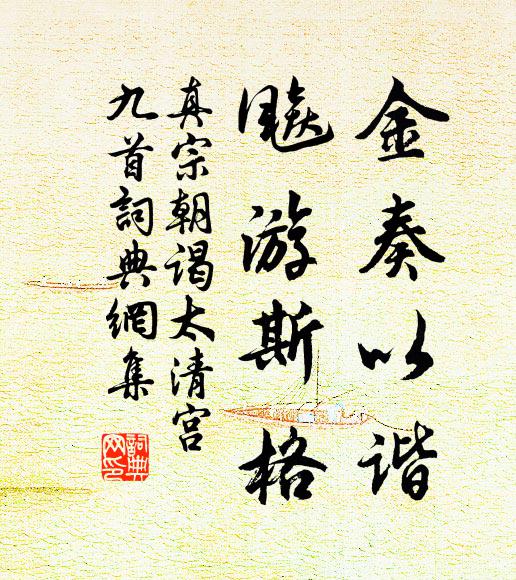 金奏以谐
飈游斯格
真宗朝谒太清宫
九首詞典網集
詞典网印